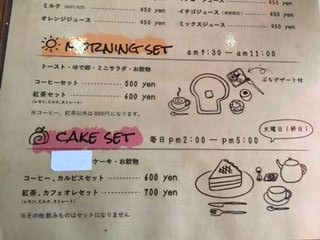 ミルク (HOT/ICE) 400 yen
オレンジジュース 500 yen
イチゴジュース
ミックスジュース
MORNING SET am9:30 ― am11:00
トースト・ゆで卵・ミニサラダ・お飲物
ぷちデザート付
コーヒーセット 500 yen
紅茶セット 600 yen
(レモン、ミルク、ストレート)
※コーヒー、紅茶以外は800円になります。
CAKE SET 毎日 pm2:00 ― pm5:00
火曜日(終日)
ケーキ・お飲物
コーヒー、カルピスセット 600 yen
紅茶、カフェオレセット 700 yen
(レモン、ミルク、ストレート)
※その他飲みものはセットになりません